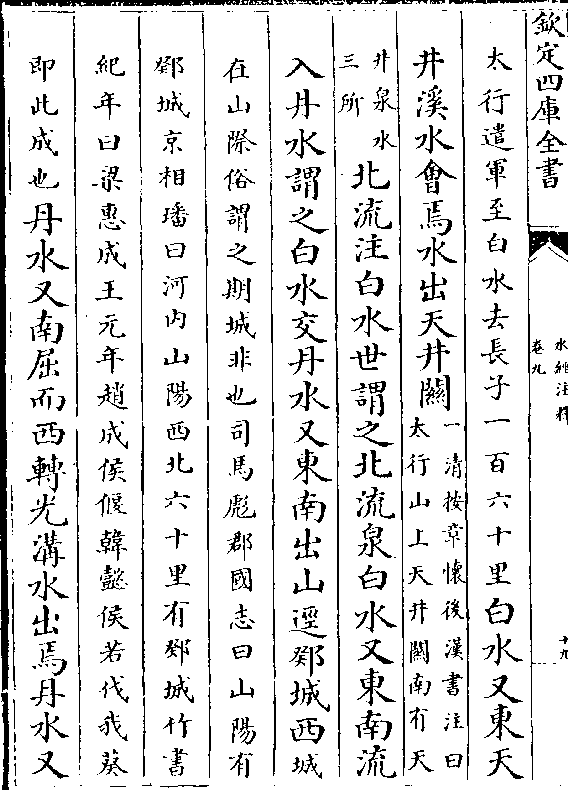 欽定四庫全書
水經注釋
卷九
十九
太行遣軍至白水去長子一百六十里白水又東天
井溪水會焉水出天井關
一清按章懷後漢書注曰
太行山上天井關南有天
井泉水
三所
北流注白水世謂之北流泉白水又東南流
入丹水謂之白水交丹水又東南出山逕鄈城西城
在山際俗謂之期城非也司馬彪郡國志曰山陽有
鄈城京相璠曰河内山陽西北六十里有鄈城竹書
紀年曰梁惠成王元年趙成侯偃韓懿侯若伐我葵
即此成也丹水又南屈而西轉光溝水出焉丹水又